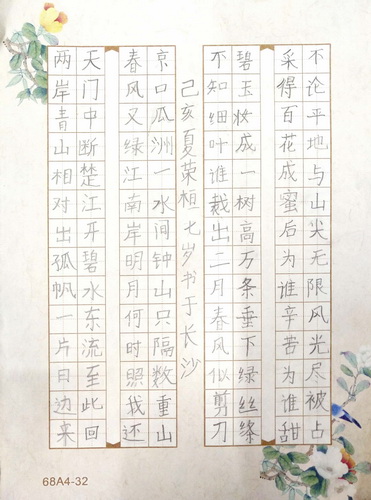 不论平地与山尖无限风光尽被占
采得百花成蜜后为谁辛苦为谁甜
碧玉妆成一树高万条垂下绿丝绦
不知细叶谁裁出二月春风似剪刀
己亥夏荣桓七岁书于长沙
京口瓜洲一水间钟山只隔数重山
春风又绿江南岸明月何时照我还
天门中断楚江开碧水东流至此回
两岸青山相对出孤帆一片日边来
68A4-32